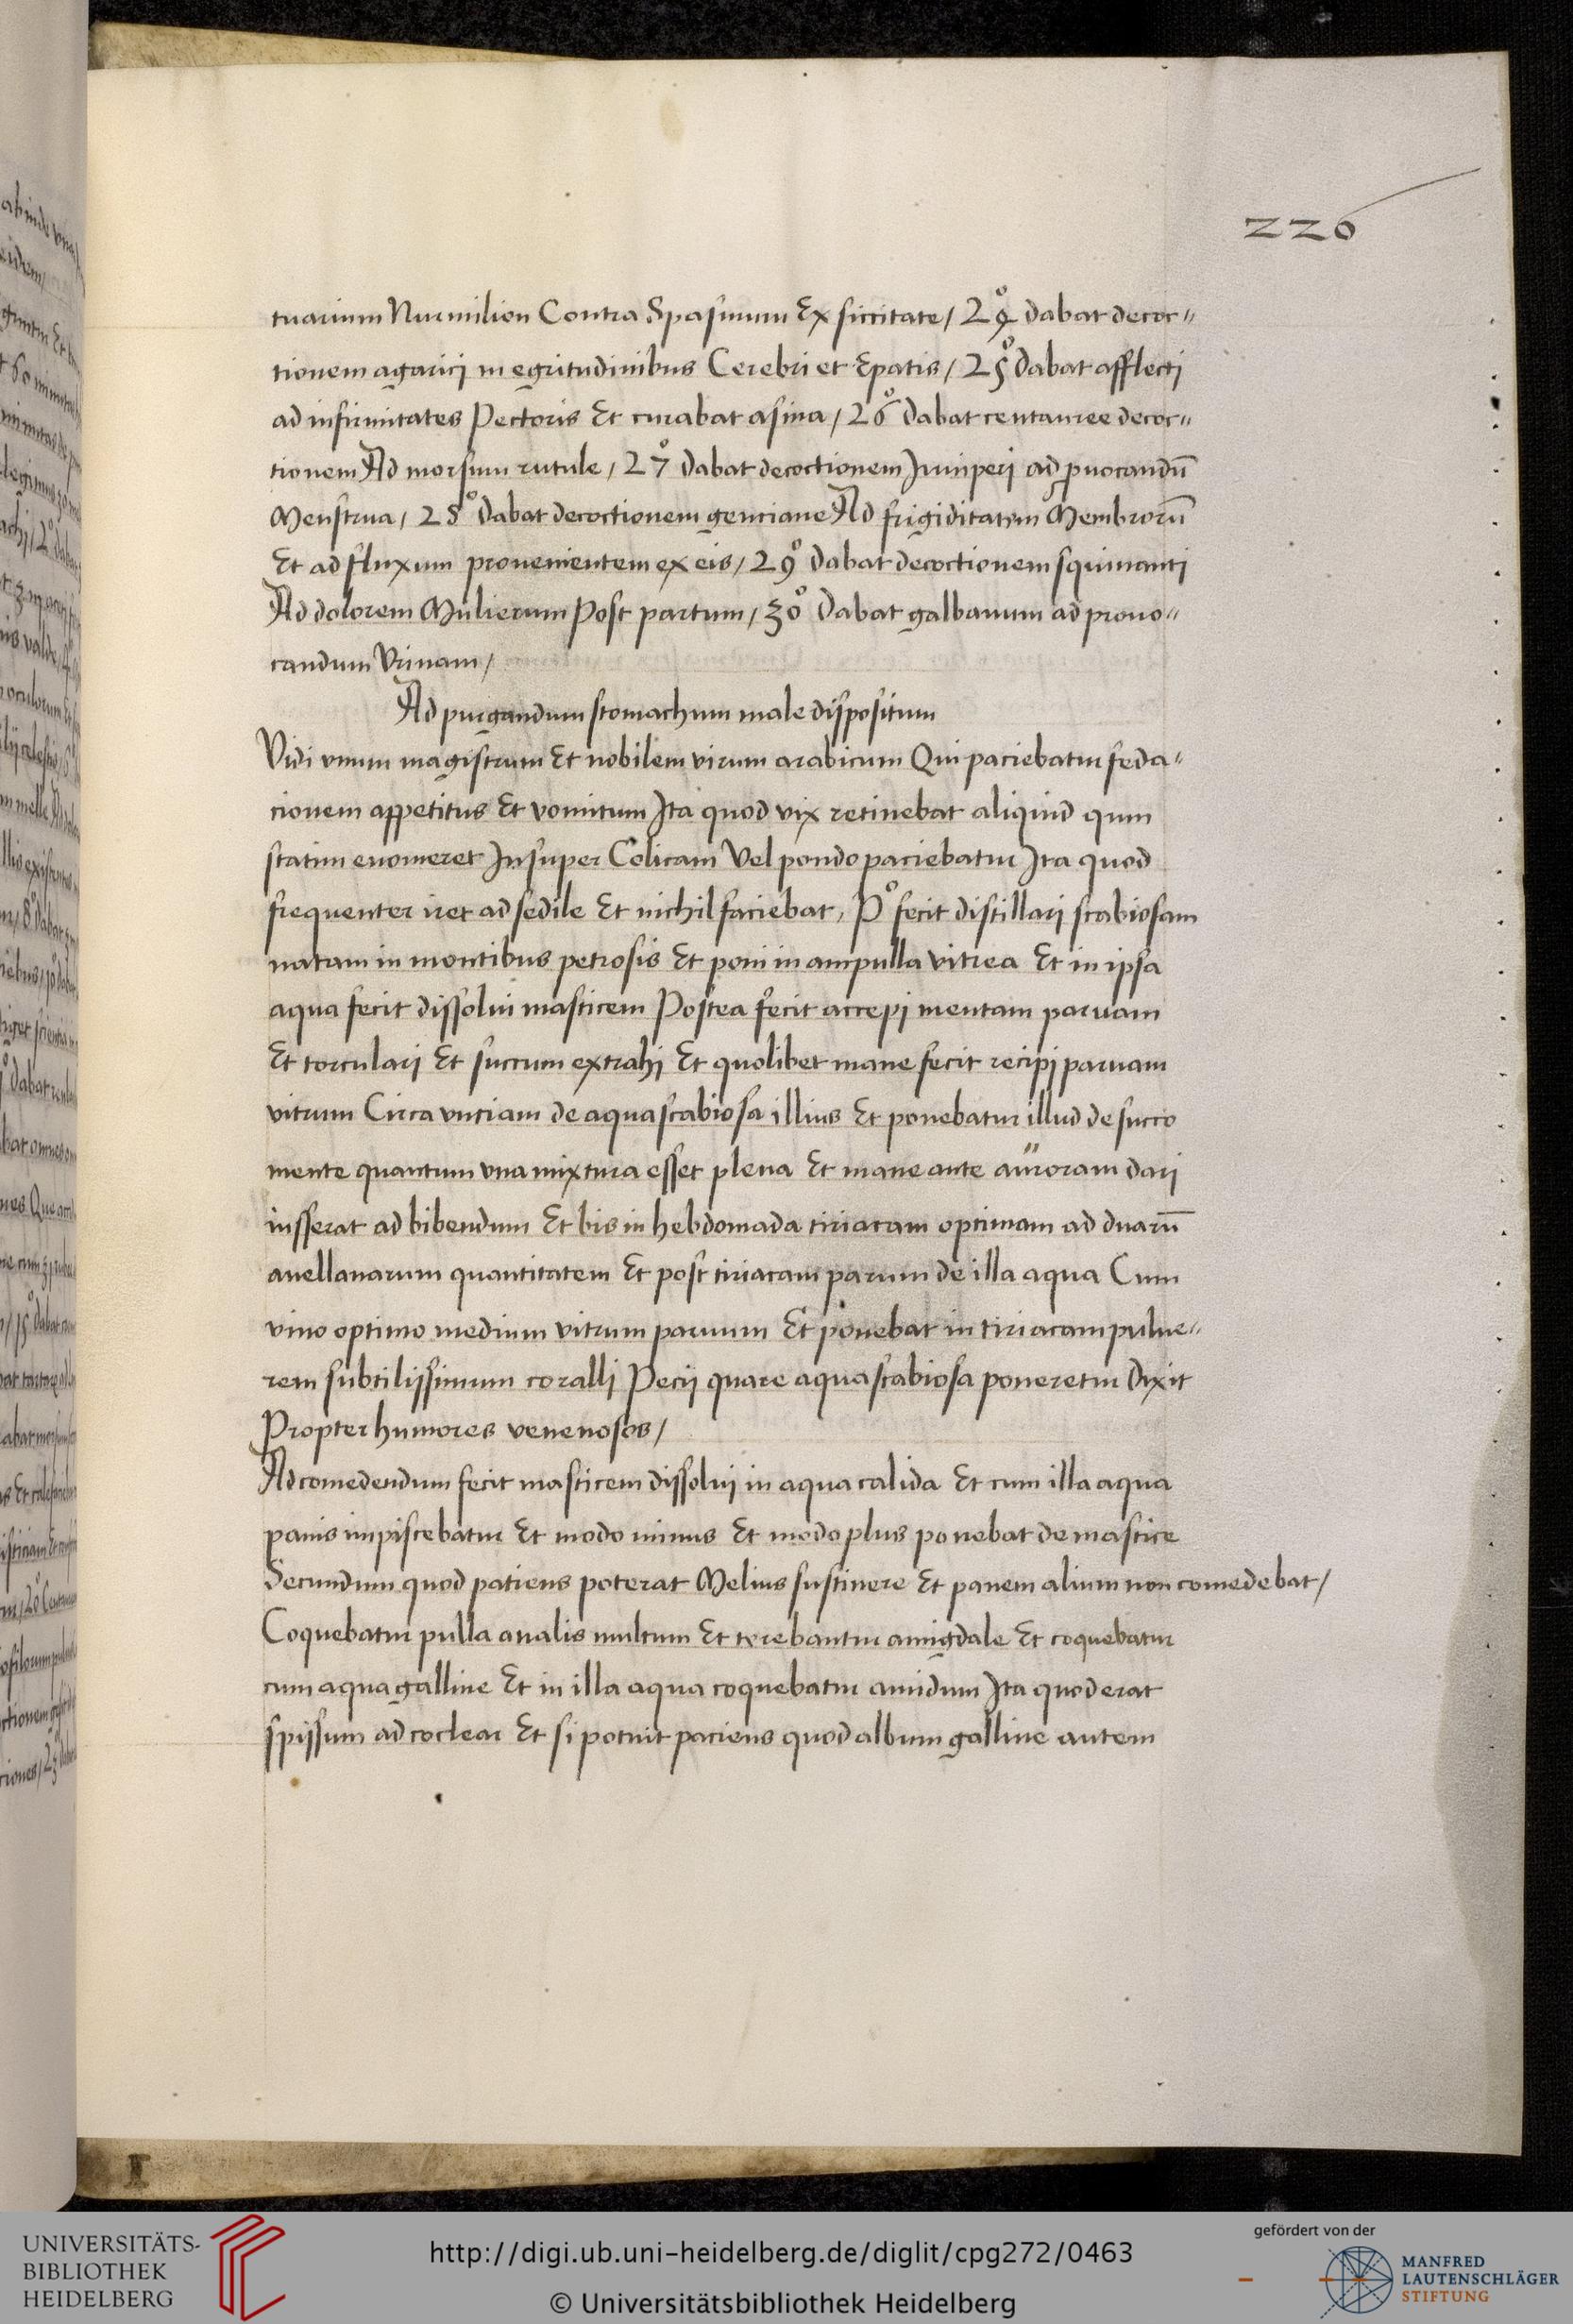 220
tuarium Nurmilion Contra Spasmum Ex siccitate / 24° dabat decoc〃
tionem agarici in egritudinibus Cerebri et Epatis / 25° dabat afflecti
ad infirmitates Pectoris Et curabat asina / 26° dabat centauree decoc〃
tionem Ad morsum rutule / 27° dabat decoctionem Juniperi ad ꝓuocandū
Menstrua / 28° dabat decoctionem genciane Ad frigiditatem Membrorū
Et ad fluxum prouenientem ex eis / 29° dabat decoctionem squinanti
Ad dolorem Mulierum Post partum / 30° dabat galbanum ad prouo〃
candum Vrinam /
Ad purgandum stomachum male dispositum
Vidi vnum magistrum Et nobilem virum arabicum Qui paciebatur seda〃
cionem appetitus Et vomitum Ita quod vix retinebat aliquid qum
statim euomeret Insuper Colicam Vel pondo paciebatur Ita quod
frequenter iret ad sedile Et nichil faciebat, P° fecit distillari scabiosam
natam in montibus petrosis Et poni in ampulla vitrea Et in ipsa
aqua fecit dissolui masticem Postea fecit accepi mentam paruam
Et torculari Et succum extrahi Et quolibet mane fecit recipi paruam
vitrum Circa vnciam de aqua scabiosa illius Et ponebatur illud de succo
mente quantum vna mixtura esset plena Et mane ante auroram dari
iusserat ad bibendum Et bis in hebdomada tiriacam optimam ad duarū
auellanarum quantitatem Et post tiriacam parum de illa aqua Cum
vino optimo medium vitrum paruum Et ponebat in tiriacam pulue〃
rem subtilissimum coralli Pecij quare aqua scabiosa poneretur dixit
Propter humores venenosos /
Ad comedendum fecit masticem dissolui in aqua calida Et cum illa aqua
panis impiscebatur Et modo minus Et modo plus ponebat de mastice
Secundum quod patiens poterat Melius sustinere Et panem alium non comedebat /
Coquebatur pulla analis multum Et terebantur amigdale Et coquebatur
cum aqua galline Et in illa aqua coquebatur amidum Ita quod erat
spissum ad coclear Et si potuit paciens quod album galline autem
UNIVERSITÄTS-
BIBLIOTHEK
HEIDELBERG
http://digi.ub.uni-heidelberg.de/diglit/cpg272/0463
© Universitätsbibliothek Heidelberg
gefördert von der
MANFRED
LAUTENSCHLÄGER
STIFTUNG